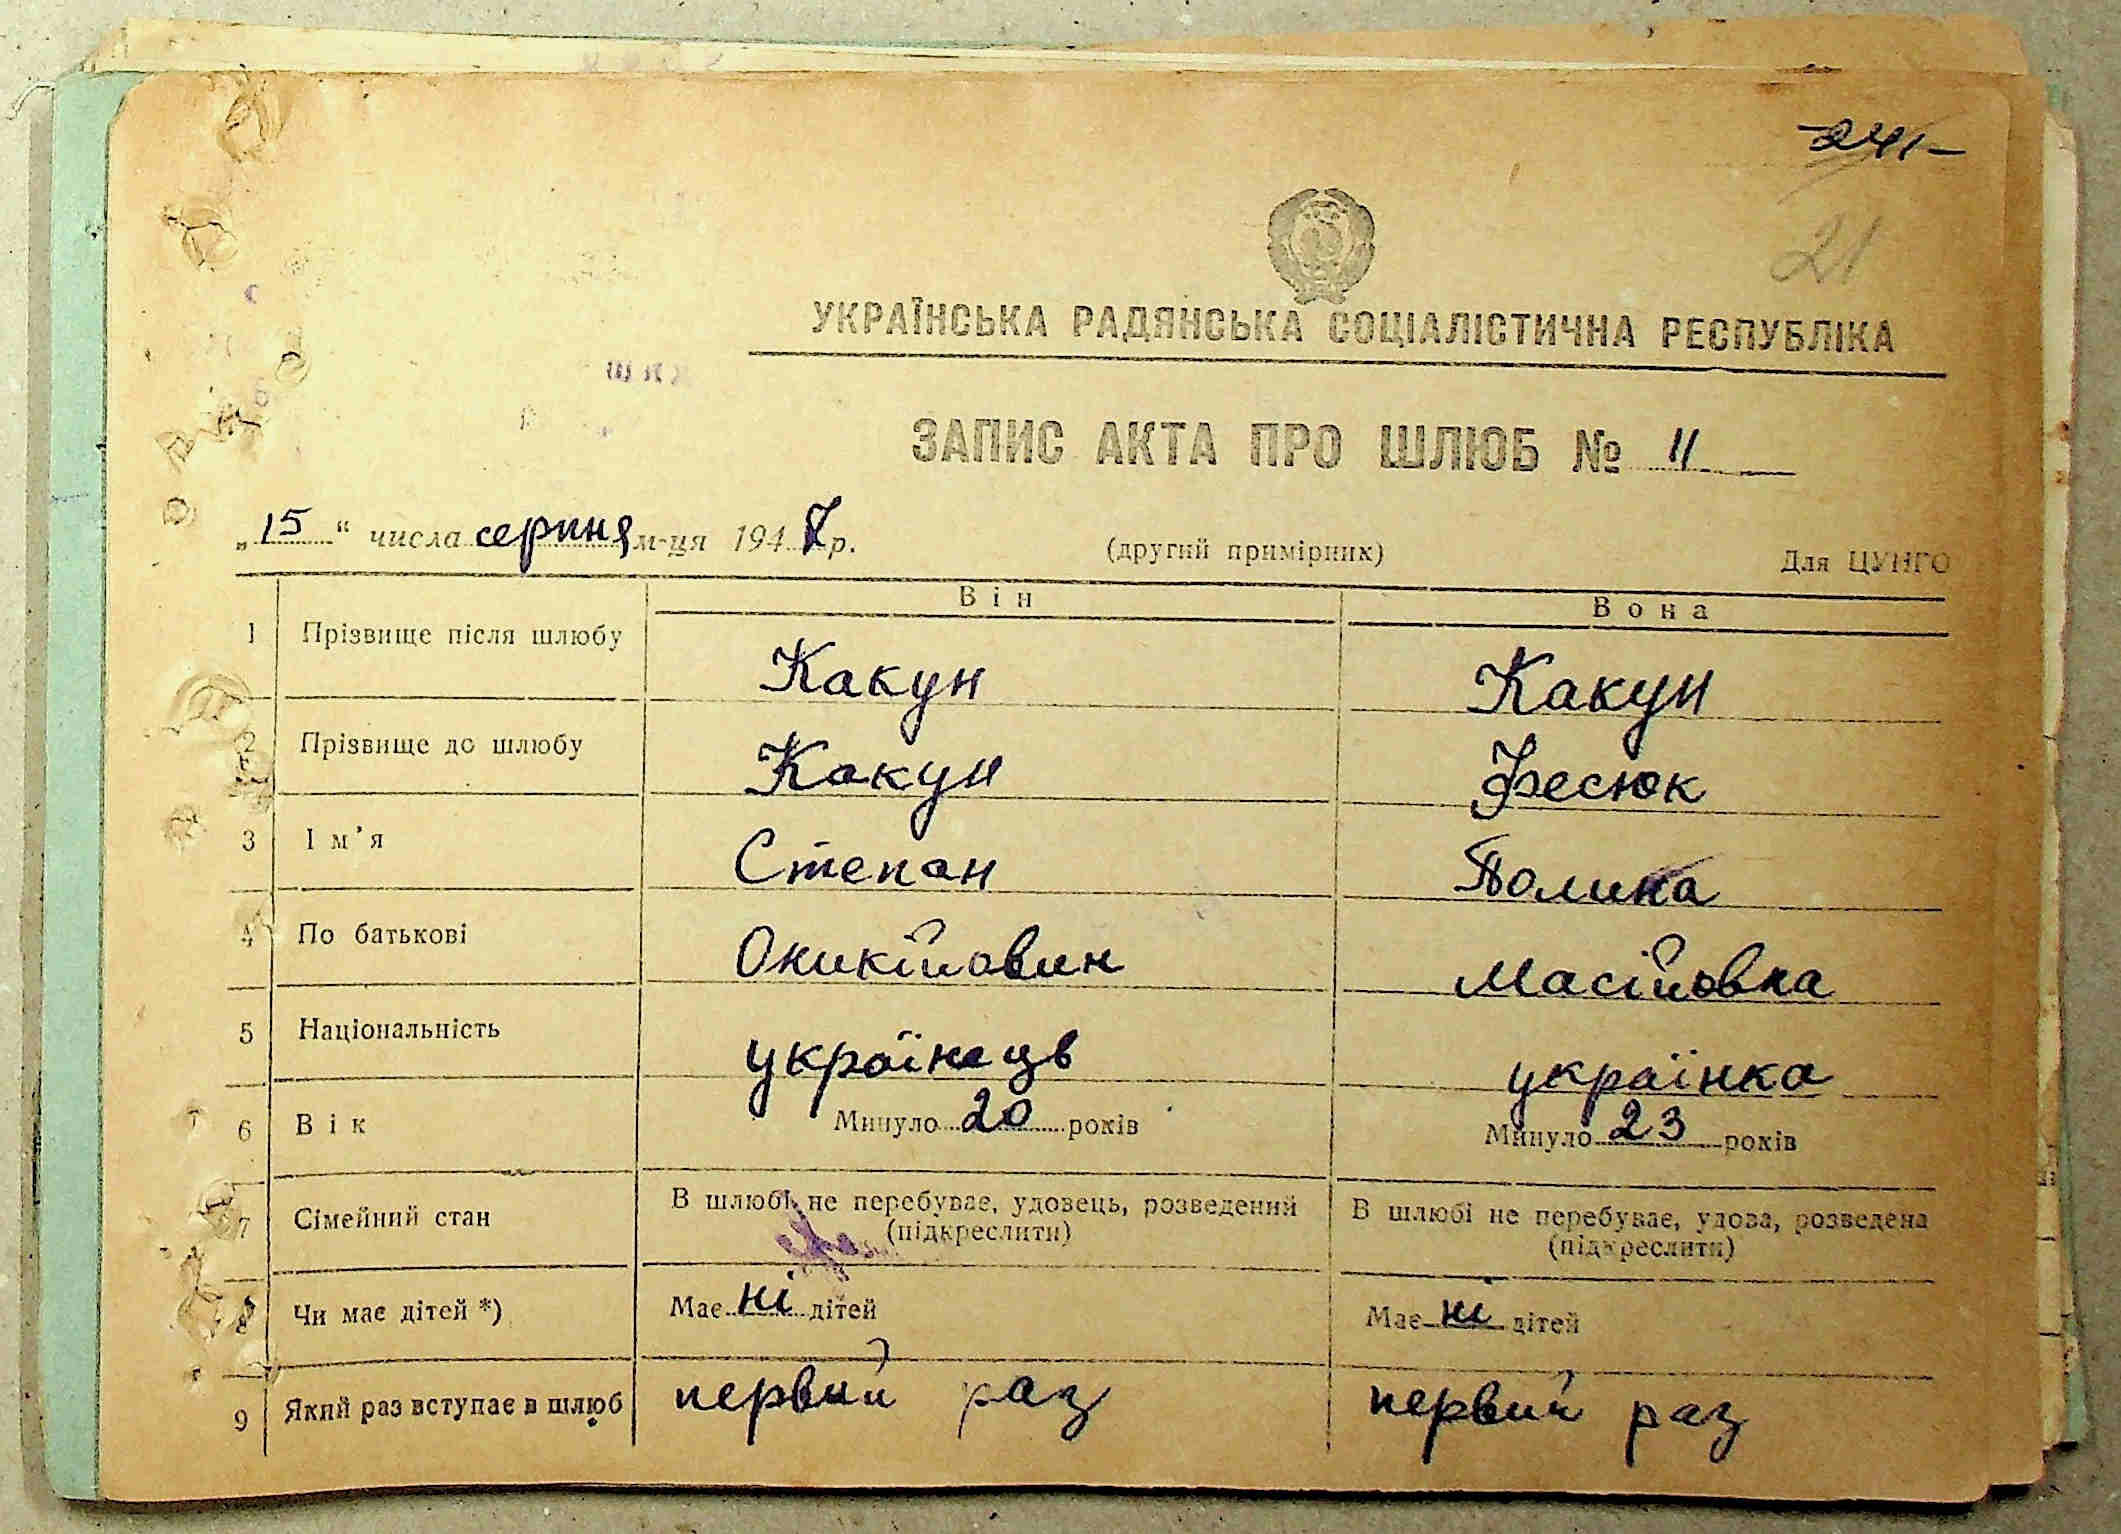 -241-
21
УКРАЇНСЬКА РАДЯНСЬКА СОЦІАЛІСТИЧНА РЕСПУБЛІКА
ЗАПИС АКТА ПРО ШЛЮБ № 11
„15“ числа серпня м-ця 1947 р. (другий примірник) Для ЦУНГО
Він Вона
1 Прізвище після шлюбу Какун Какун
2 Прізвище до шлюбу Какун Фесюк
3 Ім’я Степан Полина
4 По батькові Оникійовин Масійовна
5 Національність українець українка
6 Вік Минуло 20 років Минуло 23 років
7 Сімейний стан В шлюбі не перебуває, удовець, розведений В шлюбі не перебуває, удова, розведена
(підкреслити) (підкреслити)
8 Чи має дітей *) Має ні дітей Має ні дітей
9 Який раз вступає в шлюб первий раз первий раз